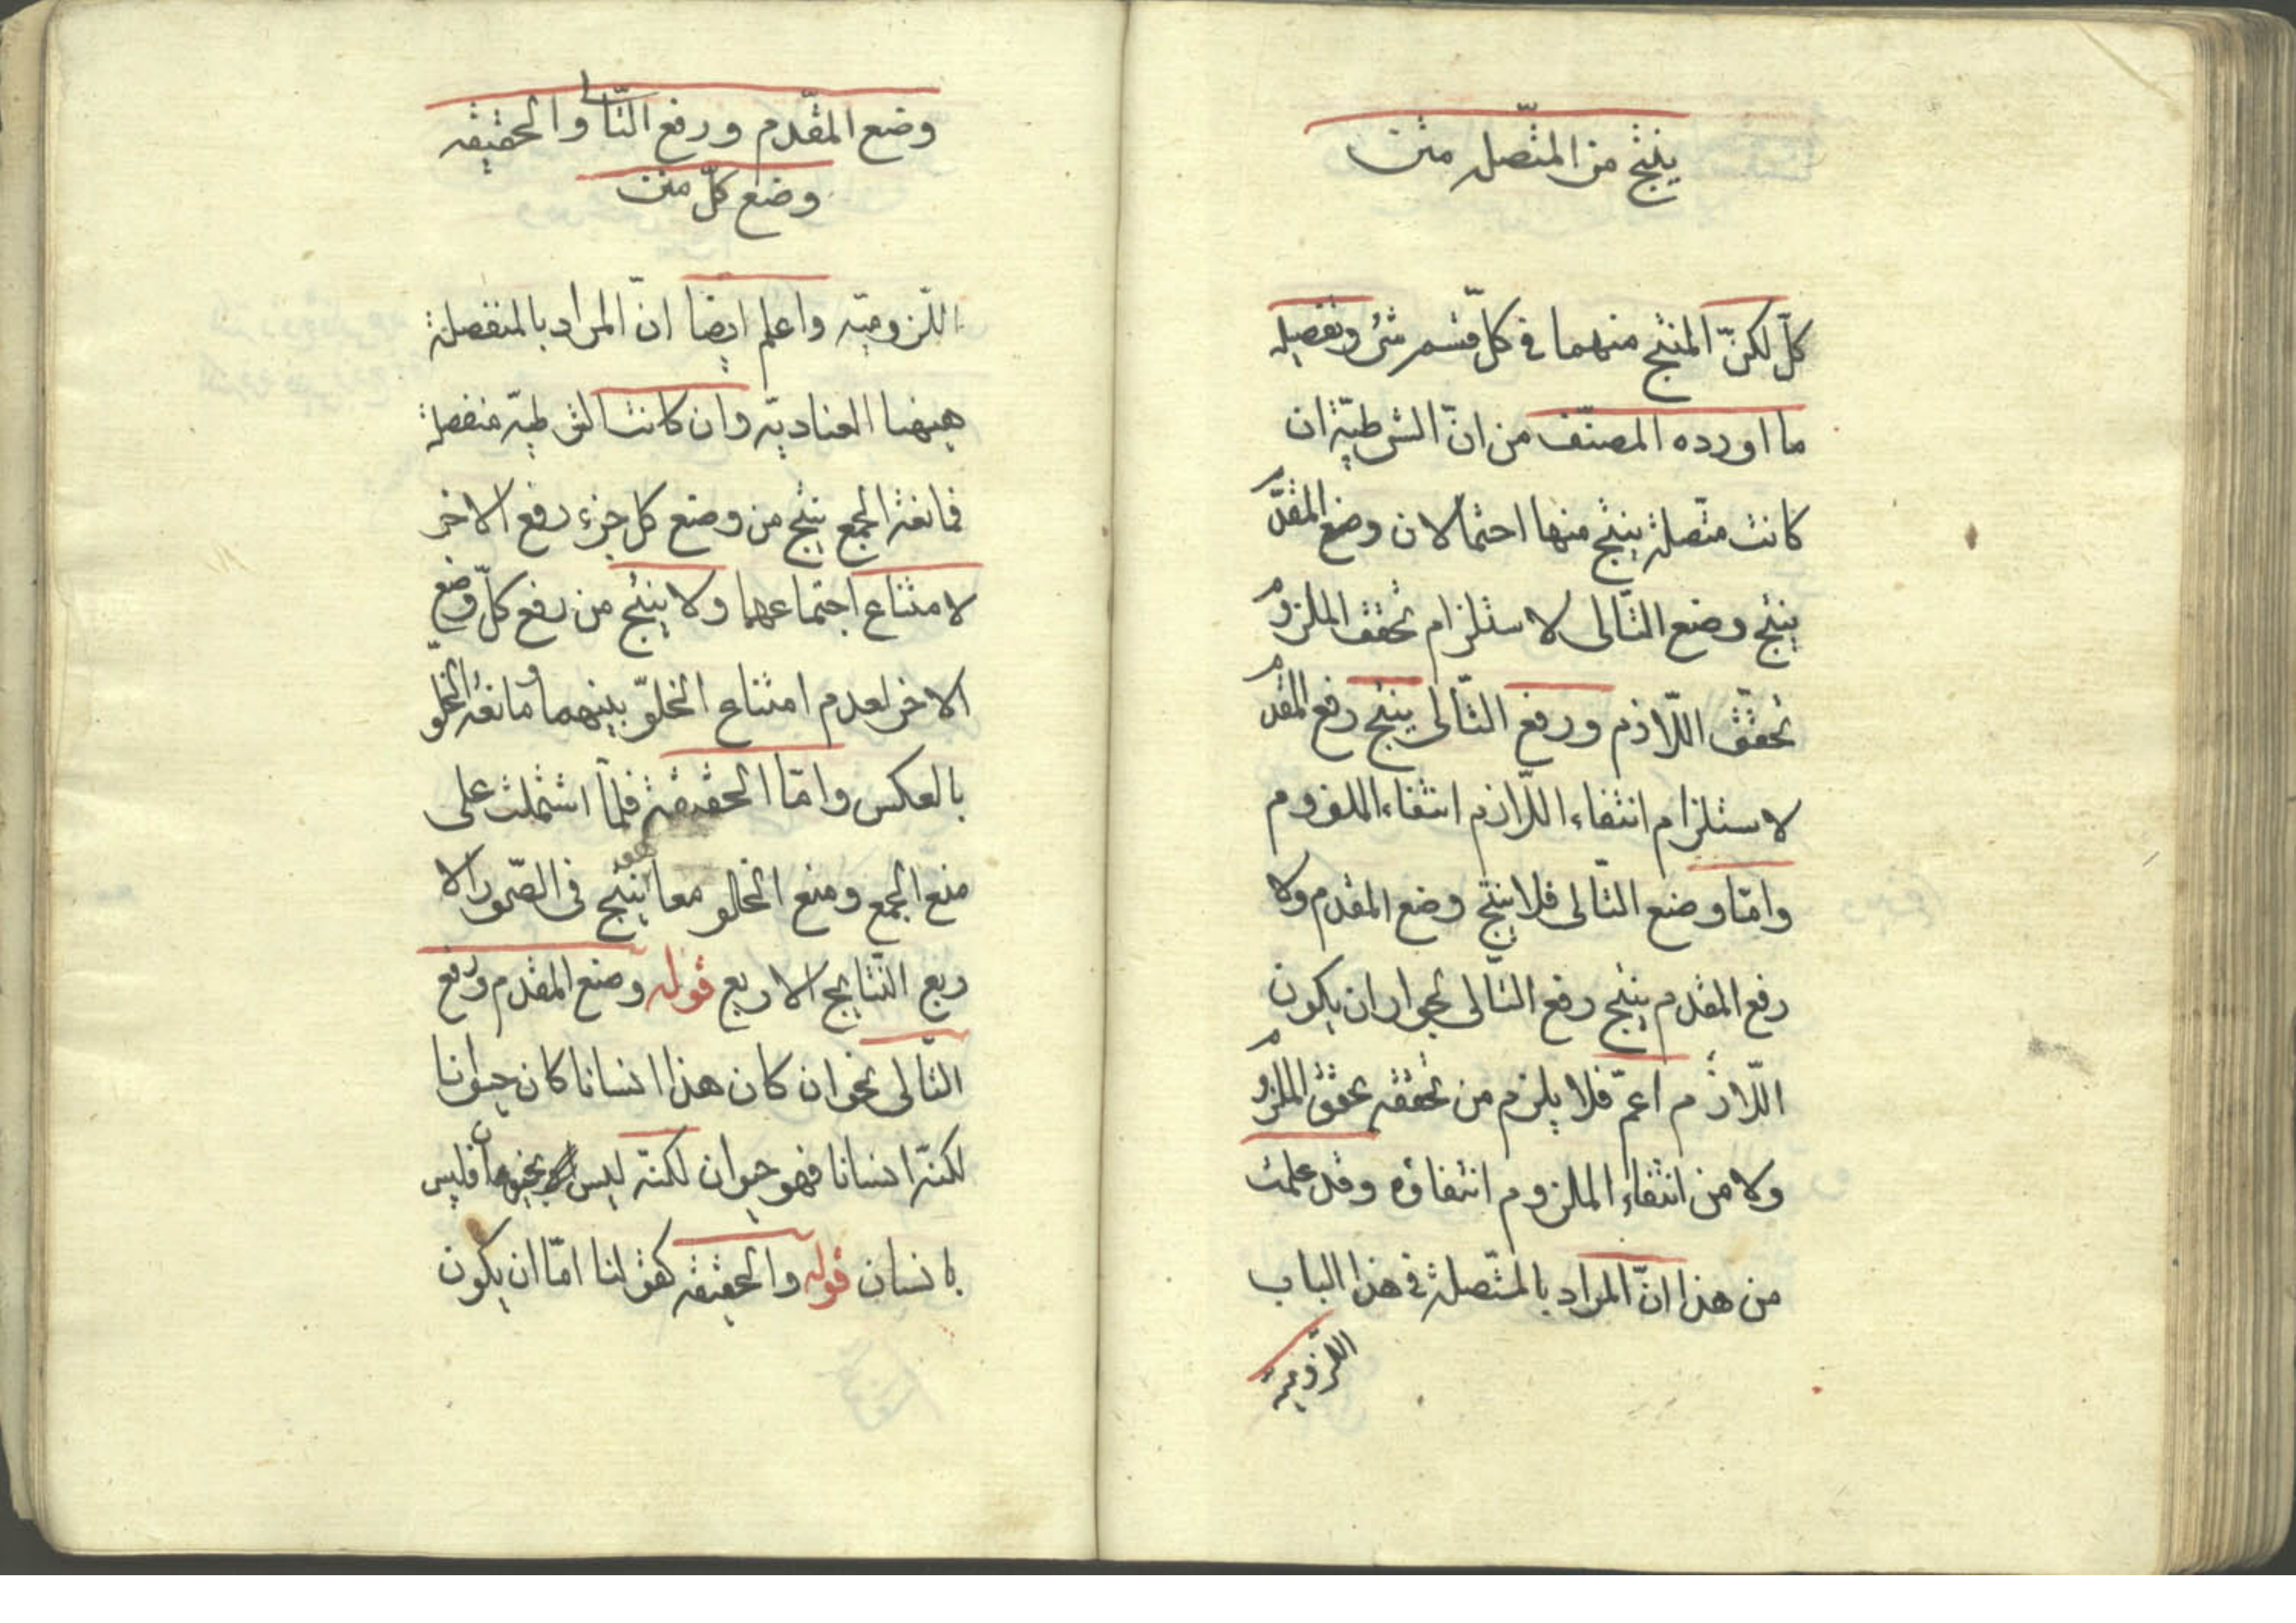 ينتج من المتّصلة متن
كلّ لكنّ المنتج منهما في كلّ قسم شئ وتفصيله
ما اورده المصنّف من انّ الشرطيّة ان
كانت متّصلة ينتج منها احتمالان وضع المقدّم
ينتج وضع التّالى لاستلزام تحقق الملزوم
تحقّق اللّازم ورفع التّالى ينتج رفع المقدم
لاستلزام انتفاء اللّازم انتفاء الملزوم
وامّا وضع التّالى فلا ينتج وضع المقدم ولا
رفع المقدم ينتج رفع التّالى لجواز ان يكون
اللّازم اعمّ فلا يلزم من تحققه تحقق الملزوم
ولا من انتفاء الملزوم انتفاؤه وقد علمت
من هذا انّ المراد بالمتّصلة في هذا الباب
اللّزوميّة
وضع المقدّم ورفع التّالى والحقيقه
وضع كلّ متن
اللّزوميّه واعلم ايضا انّ المراد بالمنفصلة
هيهنا العناديّه وان كانت الشرطيّه منفصلة
فمانعة الجمع ينتج من وضع كل جزء رفع الاخر
لامتناع اجتماعهما ولا ينتج من رفع كلّ وضع
الاخر لعدم امتناع الخلوّ بينهما ومانعة الخلوّ
بالعكس وامّا الحقيقة فلمّا اشتملت على
منع الجمع ومنع الخلو معا ينتج فى الصّور الا
ربع النّتايج الاربع قوله وضع المقدم ورفع
التّالى نحو ان كان هذا انسانا كان حيوانا
لكنّه انسانا فهو حيوان لكنّه ليس بحيوان فليس
بانسان قوله والحقيقه كقولنا امّا ان يكون